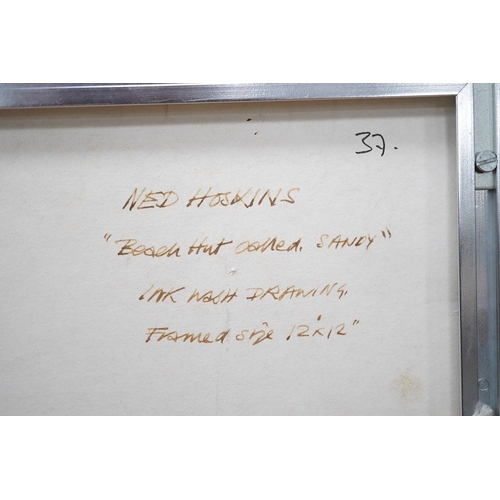 37.
NED HOSKINS
"Beach Hut called. SANDY"
INK WASH DRAWING.
Framed size 12"x12"